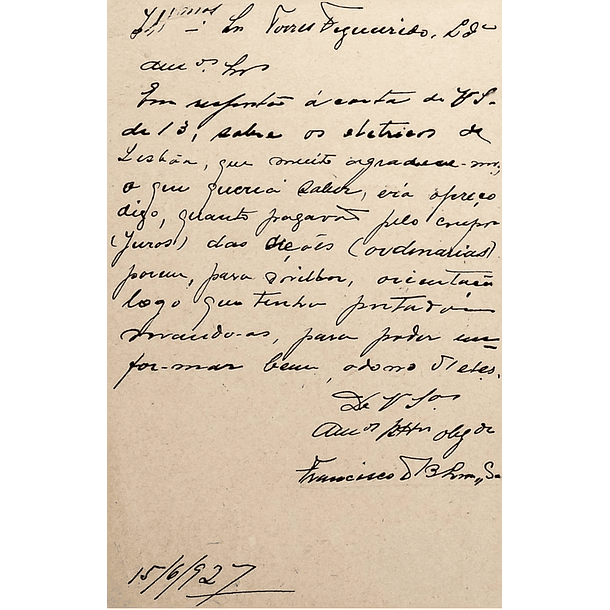 Illmos Sn Torres Figueirido, Lda
Amos. Snrs
Em resposta á carta de V S.
de 13, sobre os eletricos de
Lisbôa, que muito agradece-mos,
o que queria saber, era o preço
digo, quanto pagava pelo coupon
(Juros) das acções (ordinarias)
porem, para milhor, orientação
logo que tenha portador
mando-as, para poder in-
for-mar bem, o dono d'eles.
De V Sas
Amos Attos obgdo
Francisco
15/6/927